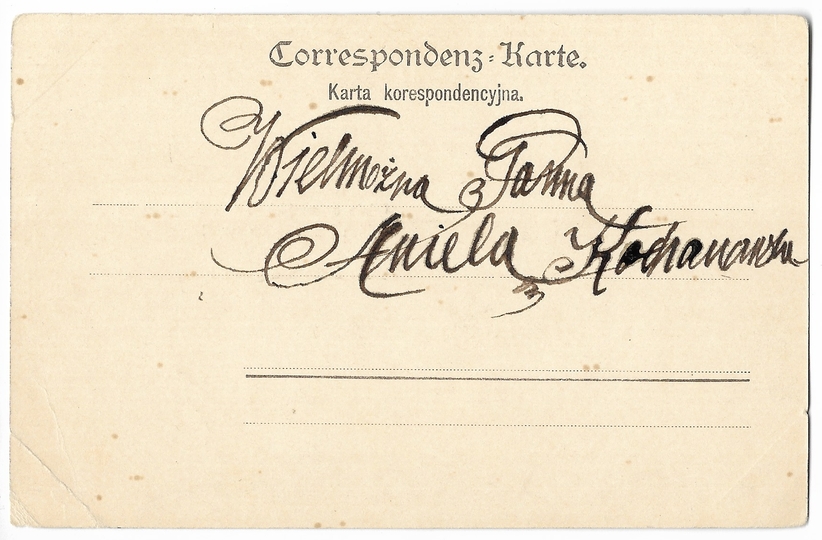 Correspondenz-Karte.
Karta korespondencyjna.
Wielmożna Panna
Aniela Kochanowska